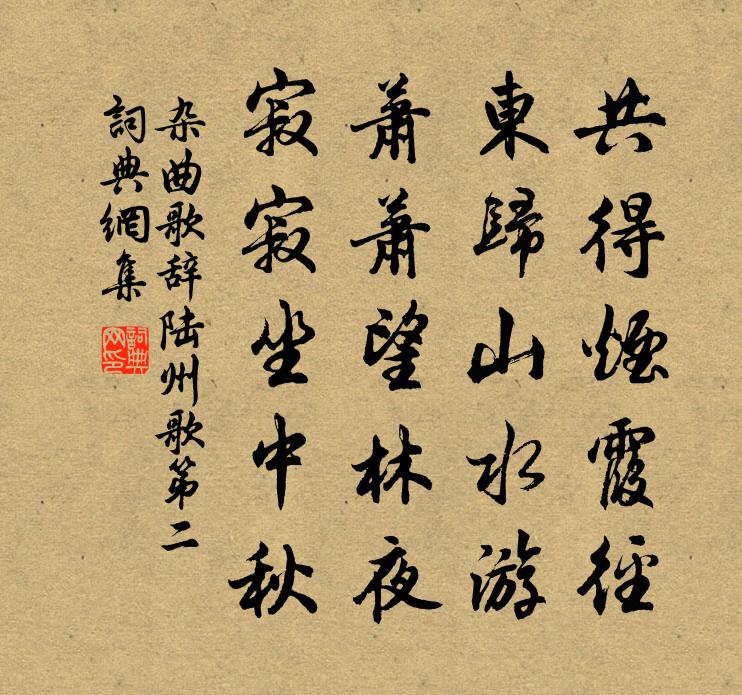 共得煙霞徑
東歸山水游
蕭蕭望林夜
寂寂坐中秋
杂曲歌辞陆州歌第二
詞典網集
詞典
网印